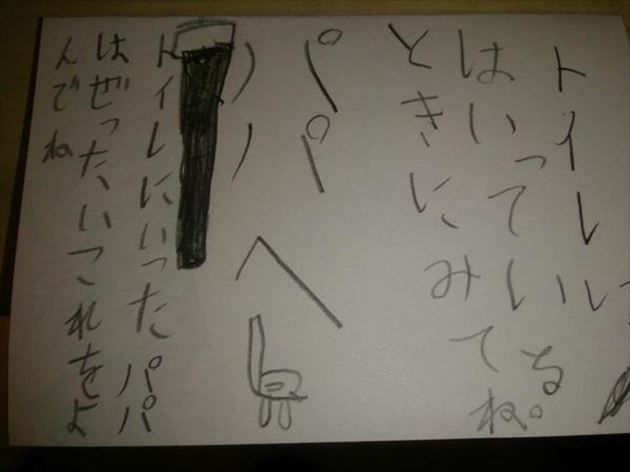 トイレに
はいっている
ときにみてね。
パパへ
トイレにいったパパ
はぜったいこれをよ
んでね